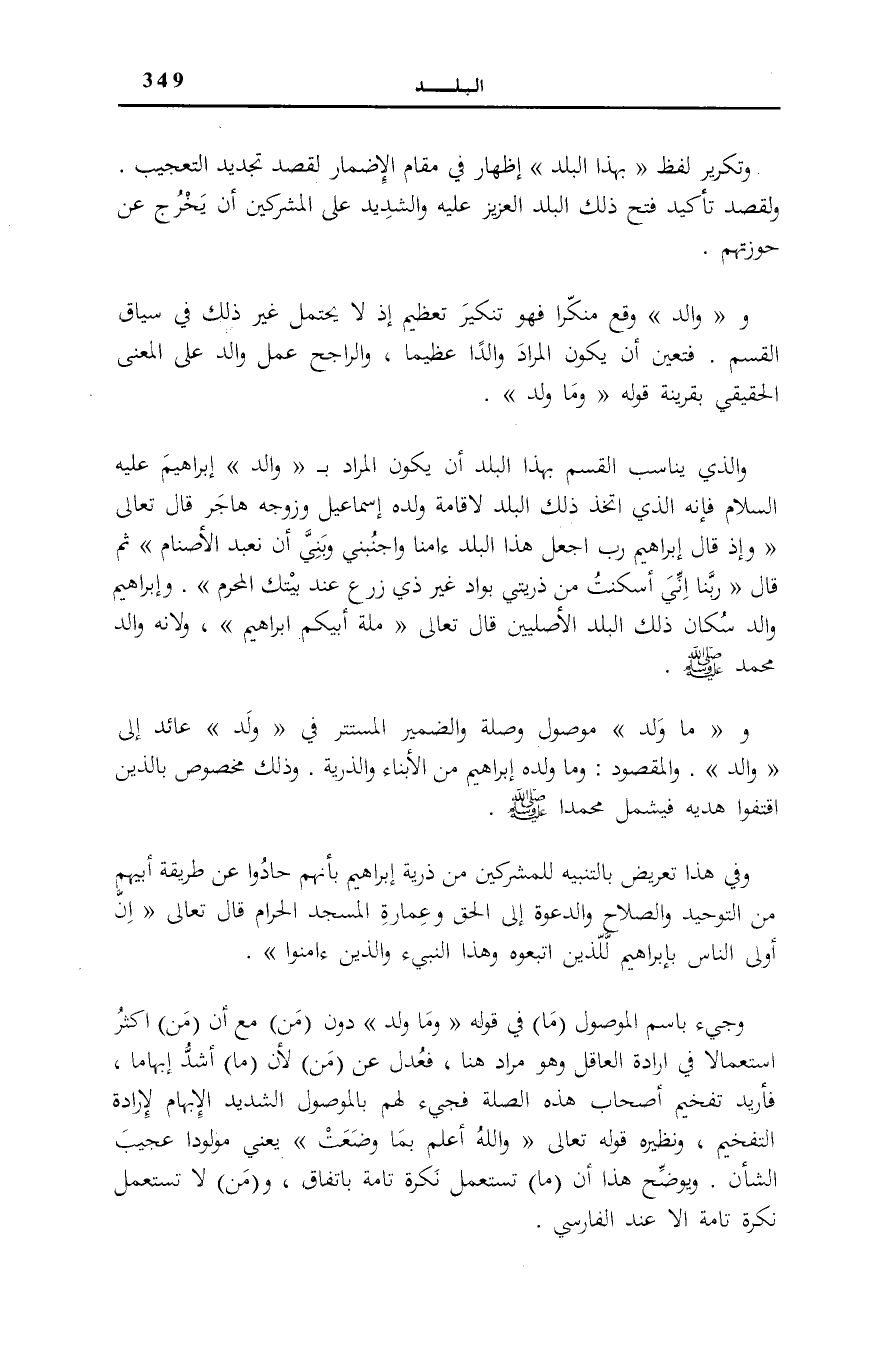 البلـــد 349
وتكرير لفظ « بهذا البلد » إظهار في مقام الإِضمار لقصد تجديد التعجيب .
ولقصد تأكيد فتح ذلك البلد العزيز عليه والشدِيد على المشركين أن يَخْرُج عن
حوزتهم .
و « والد » وقع منكّرا فهو تنكيرَ تعظيم إذ لا يحتمل غير ذلك في سياق
القسم . فتعين أن يكون المرادَ والدًا عظيما ، والراجح عمل والد على المعنى
الحقيقي بقرينة قوله « ومَا ولد » .
والذي يناسب القسم بهذا البلد أن يكون المراد بـ « والد » إبراهيمَ عليه
السلام فإنه الذي اتخذ ذلك البلد لاقامة ولده إسماعيل وزوجه هاجَر قال تعالى
« وإذ قال إبراهيم رب اجعل هذا البلد ءامنا واجنُبني وبَنِيَّ أن نعبد الأصنام » ثم
قال « ربَّنا اِنِّيَ أسكنتُ من ذريتي بواد غير ذي زرع عند بيْتك المحرم » . وإبراهيم
والد سُكان ذلك البلد الأصليين قال تعالى « ملة أبيكم ابراهيم » ، ولانه والد
محمد ﷺ .
و « ما وَلد » موصول وصلة والضمير المستتر في « ولَد » عائد إلى
« والد » . والمقصود : وما ولده إبراهيم من الأبناء والذرية . وذلك مخصوص بالذين
اقتفوا هديه فيشمل محمدا ﷺ .
وفي هذا تعريض بالتنبيه للمشركين من ذرية إبراهيم بأنهم حادُوا عن طريقة أبيهم
من التوحيد والصلاح والدعوة إلى الحق وعِمارةِ المسجد الحرام قال تعالى « اِنّ
أولى الناس بإبراهيم لَلَّذين اتبعوه وهذا النبيء والذين ءامنوا » .
وجيء باسم الموصول (مَا) في قوله « ومَا ولد » دون (مَن) مع أن (مَن) اكثرُ
استعمالا في ارادة العاقل وهو مراد هنا ، فعُدل عن (مَن) لأن (ما) أشدُّ إبهاما ،
فأريد تفخيم أصحاب هذه الصلة فجيء لهم بالموصول الشديد الإبهام لإِرادة
التفخيم ، ونظيره قوله تعالى « واللهُ أعلم بمَا وضَعَتْ » يعني مولودا عجيبَ
الشأن . ويوضِّح هذا أن (ما) تستعمل نَكرة تامة باتفاق ، و(مَن) لا تستعمل
نكرة تامة الا عند الفارسي .